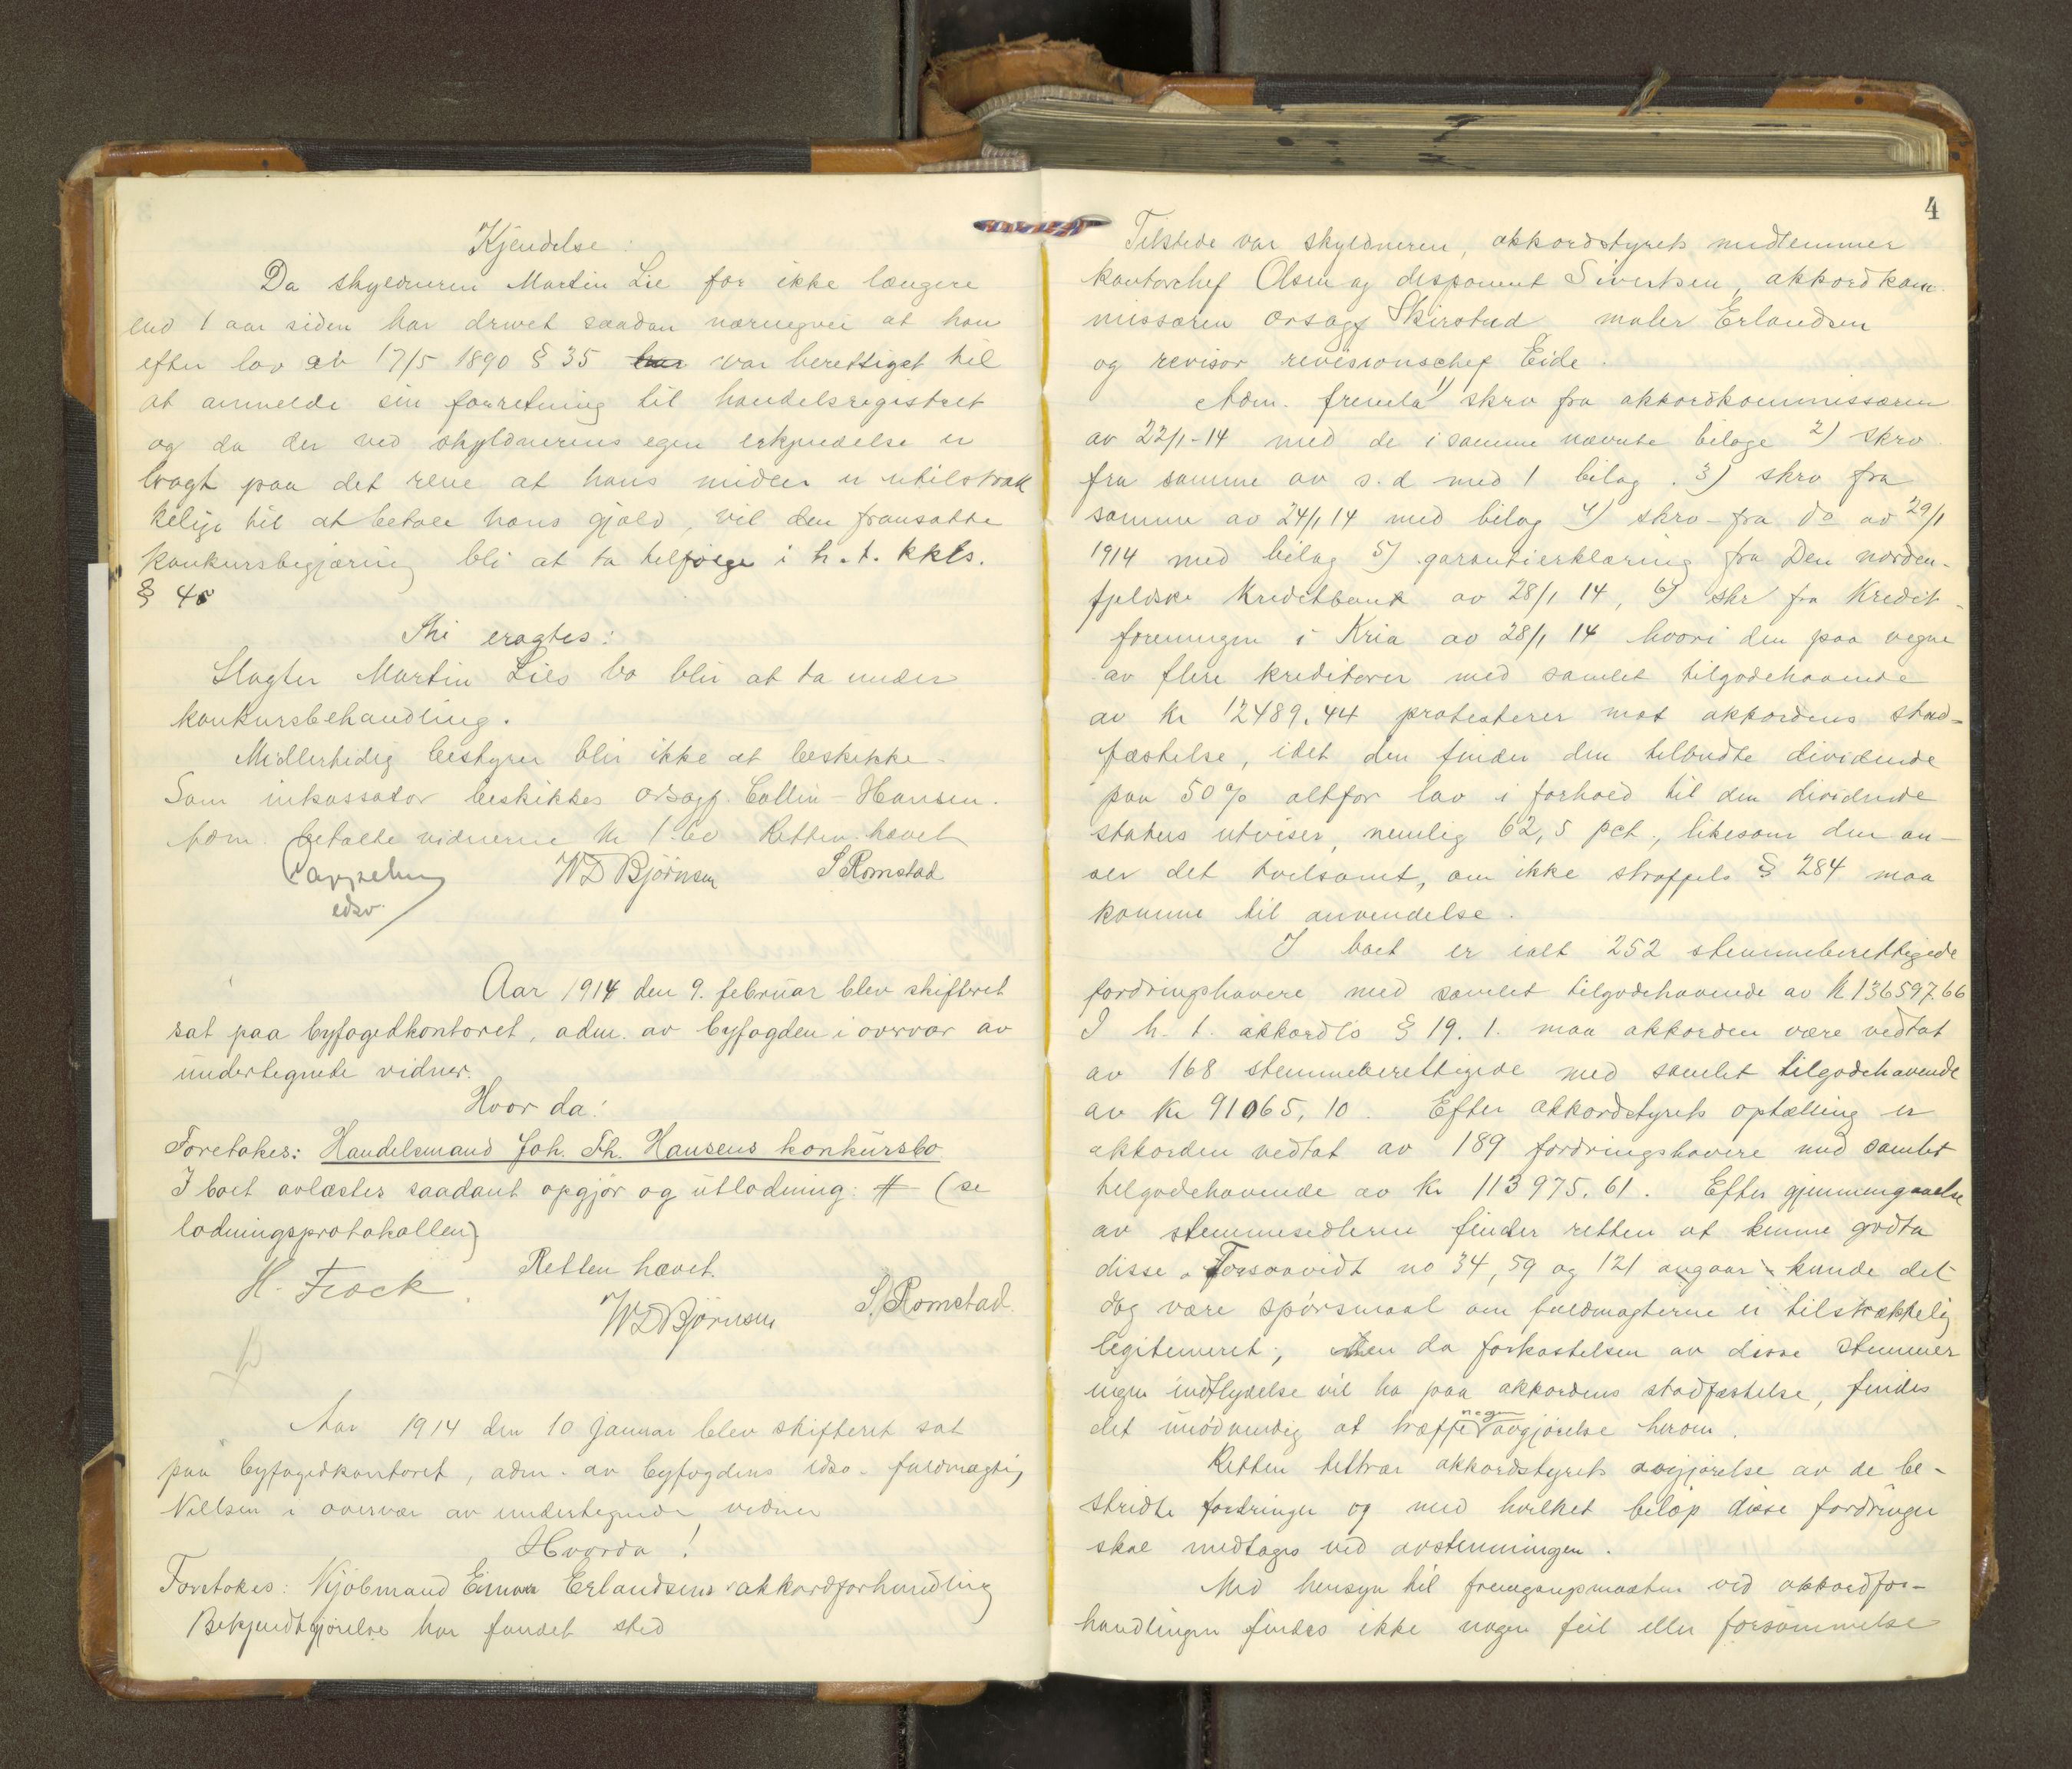 Kjendelse:
Da skyldneren Martin Lie for ikke længere
end 1 aar siden har drevet saadan næringsvei at han
efter lov av 17/5 1890 § 35 har var berettiget til
at anmelde sin forretning til handelsregistret
og da der ved skyldnerens egen erkjendelse er
bragt paa det rene at hans midler er utilstræk
kelige til at betale hans gjæld, vil den fransatte
konkursbegjæring bli at ta tilfølge i h. t. kkls.
§ 45
Thi eragtes:
Slagter Martin Lies bo blir at ta under
konkursbehandling.
Midlertidig bestyrer blir ikke at beskikke.
Som inkassator beskikkes orsagf. Collin-Hansen.
Adm. betalte vidnerne kr 1.60 Retten hævet
Cappelen WD Bjørnsen S Romstad
edsv.
Aar 1914 den 9. februar blev skifteret
sat paa byfogedkontoret, adm. av byfogden i overvær av
undertegnede vidner.
Hvor da:
Foretokes: Handelsmand Joh. Th. Hansens konkursbo
I boet avlæstes saadant opgjør og utlodning: # (se
lodningsprotokollen)
Retten hævet.
H. Frock WD Bjørnsen S. Romstad
Aar 1914 den 10 januar blev skifteret sat
paa byfogedkontoret, adm. av byfogdens edsv. fuldmægtig
Nielsen i overvær av undertegnede vidner
Hvorda!
Foretokes: Kjøbmand Einar Erlandsens akkordforhandling
Bekjendtgjørelse har fundet sted
4
Tilstede var skyldneren, akkordstyrets medlemmer
kontorchef Olsen og disponent Sivertsen, akkordkom
missæren orsagf Skirstad maler Erlandsen
og revisor revisionschef Eide.
Adm. fremla 1) skrv fra akkordkommissæren
av 22/1-14 med de i samme nævnte bilage 2) skrv
fra samme av s. d. med 1 bilag. 3) skrv fra
samme av 24/1 14 med bilag 4) skrv fra do av 29/1
1914 med bilag 5) garantierklæring fra Den norden-
fjeldske Kreditbank av 28/1 14, 6) skr fra Kredit-
foreningen i Kria av 28/1 14 hvori den paa vegne
av flere kreditorer med samlet tilgodehavende
av kr 12489.44 protesterer mot akkordens stad-
fæstelse, idet den finder den tilbudte dividende
paa 50% altfor lav i forhold til den dividende
status utviser, nemlig 62,5 pct., likesom den an-
ser det tvilsomt, om ikke straffels § 284 maa
komme til anvendelse.
I boet er ialt 252 stemmeberettigede
fordringshavere med samlet tilgodehavende av kr 136597.66
I h. t. akkordls § 19. 1. maa akkorden være vedtat
av 168 stemmeberettigede med samlet tilgodehavende
av kr 91065,10. Efter akkordstyrets optælling er
akkorden vedtat av 189 fordringshavere med samlet
tilgodehavende av kr 113975.61. Efter gjennemgaaelse
av stemmesedlerne finder retten at kunne godta
disse. Forsaavidt no 34, 59 og 121 angaar kunde det
dog være spørsmaal om fuldmagterne er tilstrækkelig
legitimeret; men da forkastelsen av disse stemmer
ingen indflydelse vil ha paa akkordens stadfæstelse, findes
det unødvendig at træffe nogen avgjørelse herom.
Retten tiltrær akkordstyrets avgjørelse av de be-
stridte fordringer og med hvilket beløp disse fordringer
skal medtages ved avstemningen.
Med hensyn til fremgangsmaaten ved akkordfor-
handlingen findes ikke nogen feil eller forsømmelse